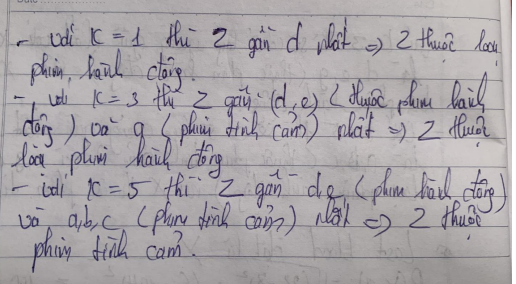 - với K = 1 thì Z gần d nhất => Z thuộc loại
phim hành động.
- với K = 3 thì Z gần (d, e) (thuộc phim hành
động) và a (phim tình cảm) nhất => Z thuộc
loại phim hành động
- với K = 5 thì Z gần d,e (phim hành động)
và a,b,c (phim tình cảm) nhất => Z thuộc
phim tình cảm.